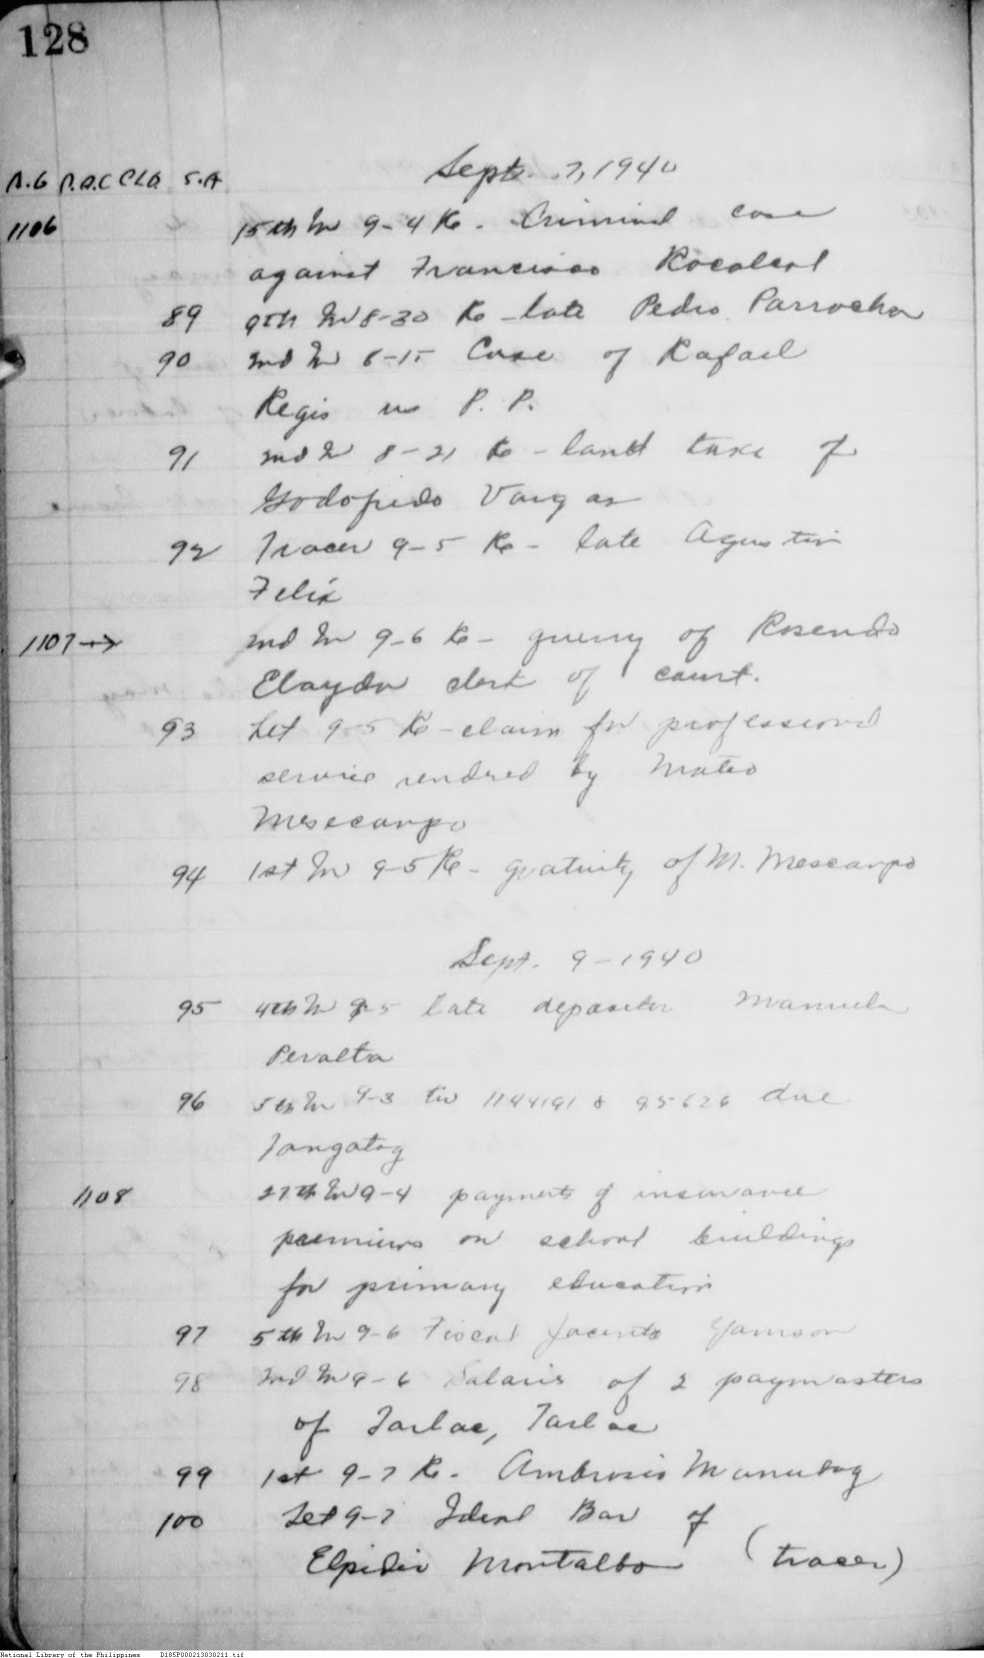 128
Sept. 7, 1940
A.G P.A.C CLA S.A
1106 15th In 9-4 Re - Criminal case
against Francisco
89 9th In 8-30 Re - late Pedro Parrocha
90 2nd In 8-15 Case of Rafael
Regis vs P. P.
91 2nd In 8-21 Re - land taxe of
Godofredo Vargas
92 Tracer 9-5 Re - late Agustin
Felix
1107 → 2nd In 9-6 Re - querry of Rosendo
clerk of court.
93 Let 9-5 Re - claim for professional
service rendred by Mateo
Mesecampo
94 1st In 9-5 Re - gratuity of M. Mesecarpo
Sept. 9-1940
95 4th In 9-5 late depositor Manuela
Peralta
96 5th In 9-3 tw 1144191 & 95626 due
Tangatag
1108 27th In 9-4 payments of insurance
premiums on school buildings
for primary education
97 5th In 9-6 Fiscal Jacinto Yamson
98 2nd In 9-6 Salaris of 2 paymasters
of Tarlac, Tarlac
99 1st 9-7 Re - Ambrosio Manutag
100 Let 9-7 Ideal Bar of
Elpidio Montalbo (tracer)
National Library of the Philippines D185P000213030211.tif